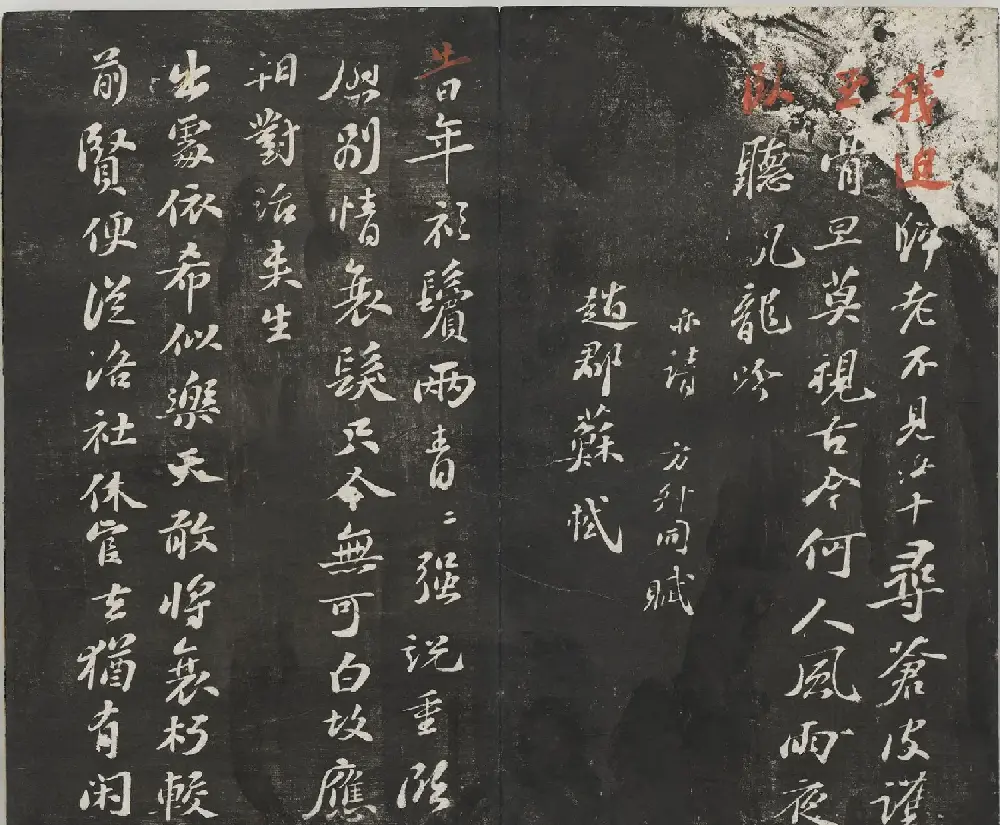 我迫歸老不見汝十尋蒼皮護
玉骨旦莫視古今何人風雨夜
臥聽飢龍吟
亦請 方外同賦
趙郡蘇軾
昔年衫鬢兩青〻强説重臨
慰别情衰髮只今無可白故應
相對話来生
出處依希似樂天敢將衰朽較
前賢便從洛社休官去猶有閑